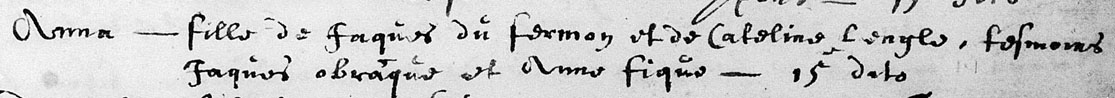 Anna — fille de Jaques du fermon et de Cateline Lengle, tesmoins
Jaques obraque et Anne fique — 15 dito